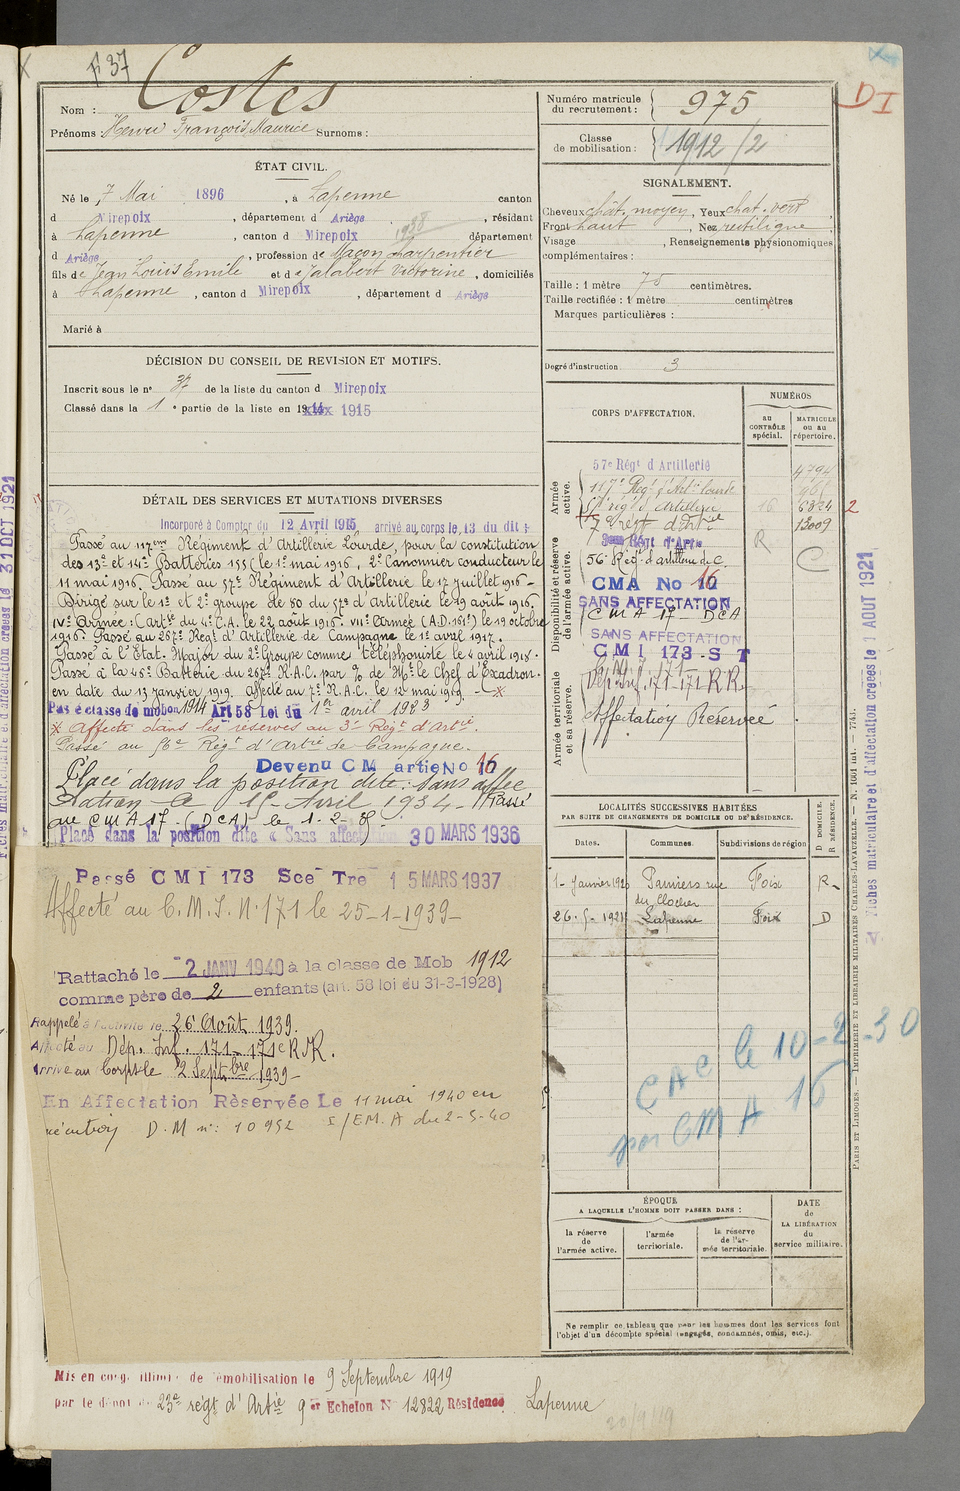 F 37
Costes
Nom :
Prénoms : Hervé François Maurice Surnoms :
Numéro matricule du recrutement : 975
Classe de mobilisation : 1912/2
DI
ÉTAT CIVIL.
Né le 7 Mai 1896, à Lapenne canton
d Mirepoix, département d Ariège, résidant
à Lapenne, canton d Mirepoix 1938 département
d Ariège, profession de Maçon Charpentier
fils de Jean Louis Emile et de Jalabert Victorine, domiciliés
à Lapenne, canton d Mirepoix, département d Ariège
Marié à
SIGNALEMENT.
Cheveux chât. moyen, Yeux chat. vert
Front haut, Nez rectiligne
Visage , Renseignements physionomiques
complémentaires :
Taille : 1 mètre 75 centimètres.
Taille rectifiée : 1 mètre centimètres
Marques particulières :
Degré d'instruction 3
DÉCISION DU CONSEIL DE REVISION ET MOTIFS.
Inscrit sous le n° 37 de la liste du canton d Mirepoix
Classé dans la 1 e partie de la liste en 1915
DÉTAIL DES SERVICES ET MUTATIONS DIVERSES
Incorporé à Compter du 12 Avril 1915 arrivé au corps le 13 du dit
Passé au 117ème Régiment d'Artillerie Lourde, pour la constitution
des 13e et 14e Batteries 155 (le 1er mai 1916. 2e Canonnier conducteur le
11 mai 1916 - Passé au 57e Régiment d'Artillerie le 17 juillet 1916 -
Dirigé sur le 1er et 2e groupe de 80 du 57e d'Artillerie le 19 août 1916
IVe Armée : Cartie du 4e C.A. le 22 août 1916. VIIe Armée (A.D. 161e) le 19 octobre
1916. Passé au 267e Regt d'Artillerie de Campagne le 1er avril 1917.
Passé à l'Etat-Major du 2e Groupe comme téléphoniste le 4 avril 1918.
Passé à la 45e Batterie du 267e R.A.C. par % de Mr le Chef d'Escadron
en date du 13 janvier 1919. affecté au 7e R.A.C. le 12 mai 1919. x
Passé à classe de mobon 1914 Art 58 Loi du 1er avril 1923
x Affecté dans les réserves au 3e Régt d'Artie
Passé au 56e Régt d'Artie de Campagne.
Devenu CM artie No 16
Placé dans la position dite : Sans affec
tation le 1er Avril 1934 - Passé
au CMA 17 - (DCA) le 1-2-35
Placé dans la position dite « Sans affectation 30 MARS 1936
Passé CMI 173 Sce Tre 15 MARS 1937
Affecté au C.M.I. N° 171 le 25-1-1939
Rattaché le 2 JANV 1940 à la classe de Mob 1912
comme père de 2 enfants (art. 58 loi du 31-3-1928)
Rappelé à l'activité le 26 Août 1939.
Affecté au Dép. Inf. 171 - 171e R.R.
Arrivé au Corps le 2 Septbre 1939 -
En Affectation Réservée Le 11 mai 1940 en
exécution D.M n° : 10952 I/EM.A du 2-5-40
CORPS D'AFFECTATION.
NUMÉROS
AU CONTRÔLE spécial.
MATRICULE ou au répertoire.
Armée active.
57e Régt d'Artillerie 4794
117e Regt d'Artie lourde
57e régt d'Artillerie 16 6324 2
7e régt d'Artie 13009
Disponibilité et réserve de l'armée active.
Régt d'Artie R
56e Régt d'artillerie de C. C
CMA No 16
SANS AFFECTATION
CMA 17 - DCA
SANS AFFECTATION
CMI 173 - ST
Armée territoriale et sa réserve.
C.M.I 171
Dép Inf. 171-171 RR
Affectation Réservée
LOCALITÉS SUCCESSIVES HABITÉES
PAR SUITE DE CHANGEMENTS DE DOMICILE OU DE RÉSIDENCE.
D DOMICILE. R RÉSIDENCE.
Dates. Communes. Subdivisions de région
1 - Janvier 1920 Pamiers rue du Clocher Foix R
26-5-1921 Lapenne Foix D
CAC le 10-2-30
par CMA 16
ÉPOQUE
A LAQUELLE L'HOMME DOIT PASSER DANS :
la réserve de l'armée active.
l'armée territoriale.
la réserve de l'armée territoriale.
DATE de LA LIBÉRATION du service militaire.
Ne remplir ce tableau que pour les hommes dont les services font
l'objet d'un décompte spécial (engagés, condamnés, omis, etc.).
Mis en congé illimité de démobilisation le 9 Septembre 1919
par le dépôt du 23e régt d'Artie 9e Echelon No 12822 Résidence Lapenne
20/9/19
PARIS ET LIMOGES. — IMPRIMERIE ET LIBRAIRIE MILITAIRES CHARLES-LAVAUZELLE. — N. 1001 int. — 7741.
Fiches matriculaire et d'affectation créées le 1 AOUT 1921
Fiches matriculaire et d'affectation créées le 31 OCT 1921